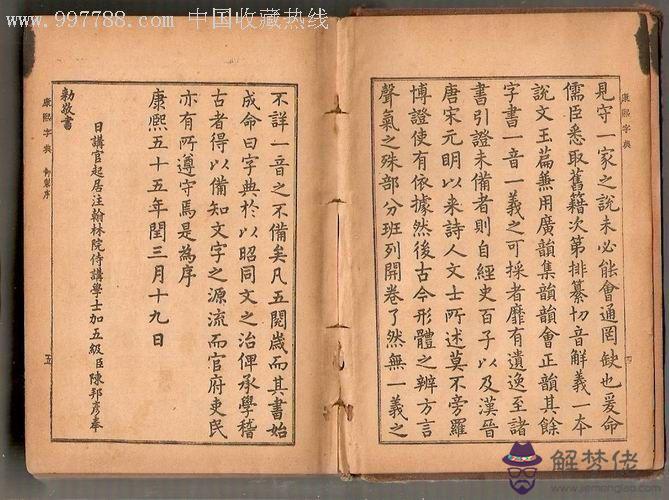 www.997788.com 中国收藏热线
康熙字典
四
見守一家之說未必能會通罔缺也爰命
儒臣悉取舊籍次第排纂切音解義一本
說文玉篇兼用廣韻集韻韻會正韻其餘
字書一音一義之可採者靡有遺逸至諸
書引證未備者則自經史百子以及漢晉
唐宋元明以來詩人文士所述莫不旁羅
博證使有依據然後古今形體之辨方言
聲氣之殊部分班列開卷了然無一義之
不詳一音之不備矣凡五閱歲而其書始
成命曰字典於以昭同文之治俾承學稽
古者得以備知文字之源流而官府吏民
亦有所遵守焉是為序
康熙五十五年閏三月十九日
日講官起居注翰林院侍講學士加五級臣陳邦彥奉
勅敬書
康熙字典 御製序
五
解梦佬